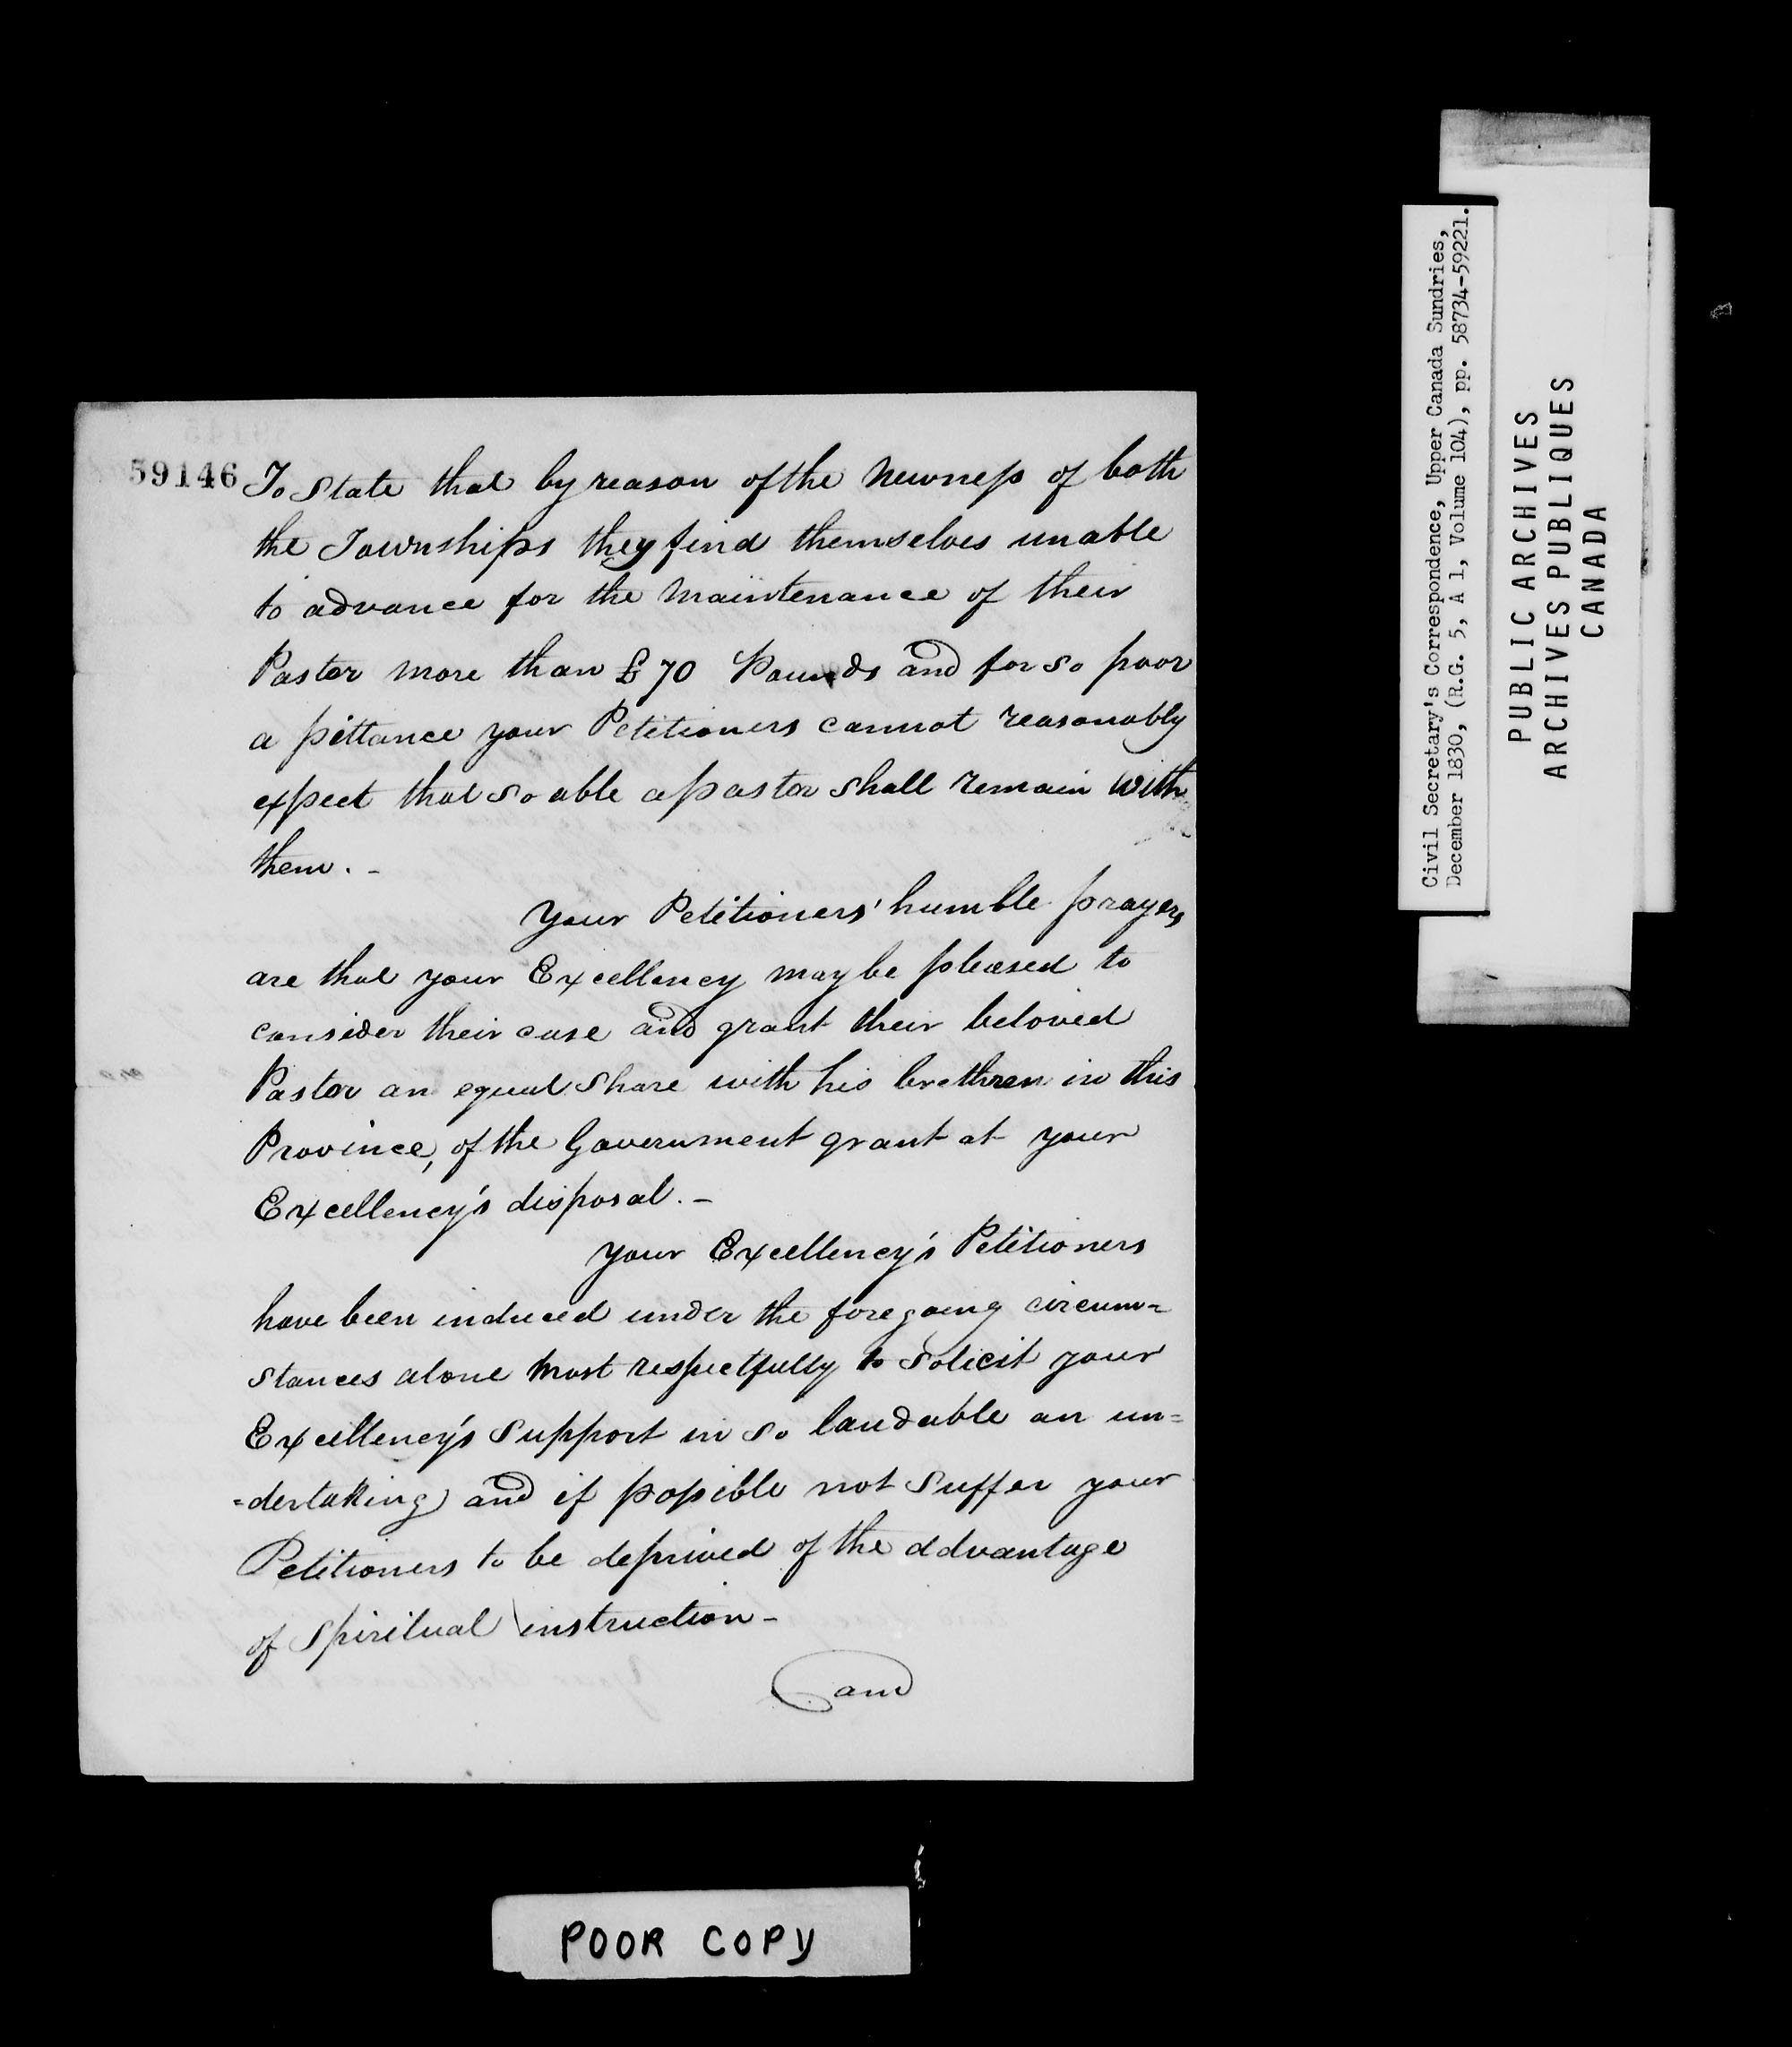 59146
To State that by reason of the Newness of both
the Townships they find themselves unable
to advance for the Maintenance of their
Pastor more than £70 Pounds and for so poor
a pittance your Petitioners cannot reasonably
expect that so able a pastor shall remain with
them. -
Your Petitioners' humble prayers
are that your Excellency may be pleased to
consider their case and grant their beloved
Pastor an equal Share with his brethren in this
Province, of the Government grant at your
Excellency's disposal. -
Your Excellency's Petitioners
have been induced under the foregoing circum=
stances alone most respectfully to Solicit your
Excellency's Support in so laudable an un=
=dertaking and if possible not Suffer your
Petitioners to be deprived of the advantage
of Spiritual instruction -
and
Civil Secretary's Correspondence, Upper Canada Sundries,
December 1830, (R.G. 5, A 1, Volume 104), pp. 58734-59221.
PUBLIC ARCHIVES
ARCHIVES PUBLIQUES
CANADA
POOR COPY